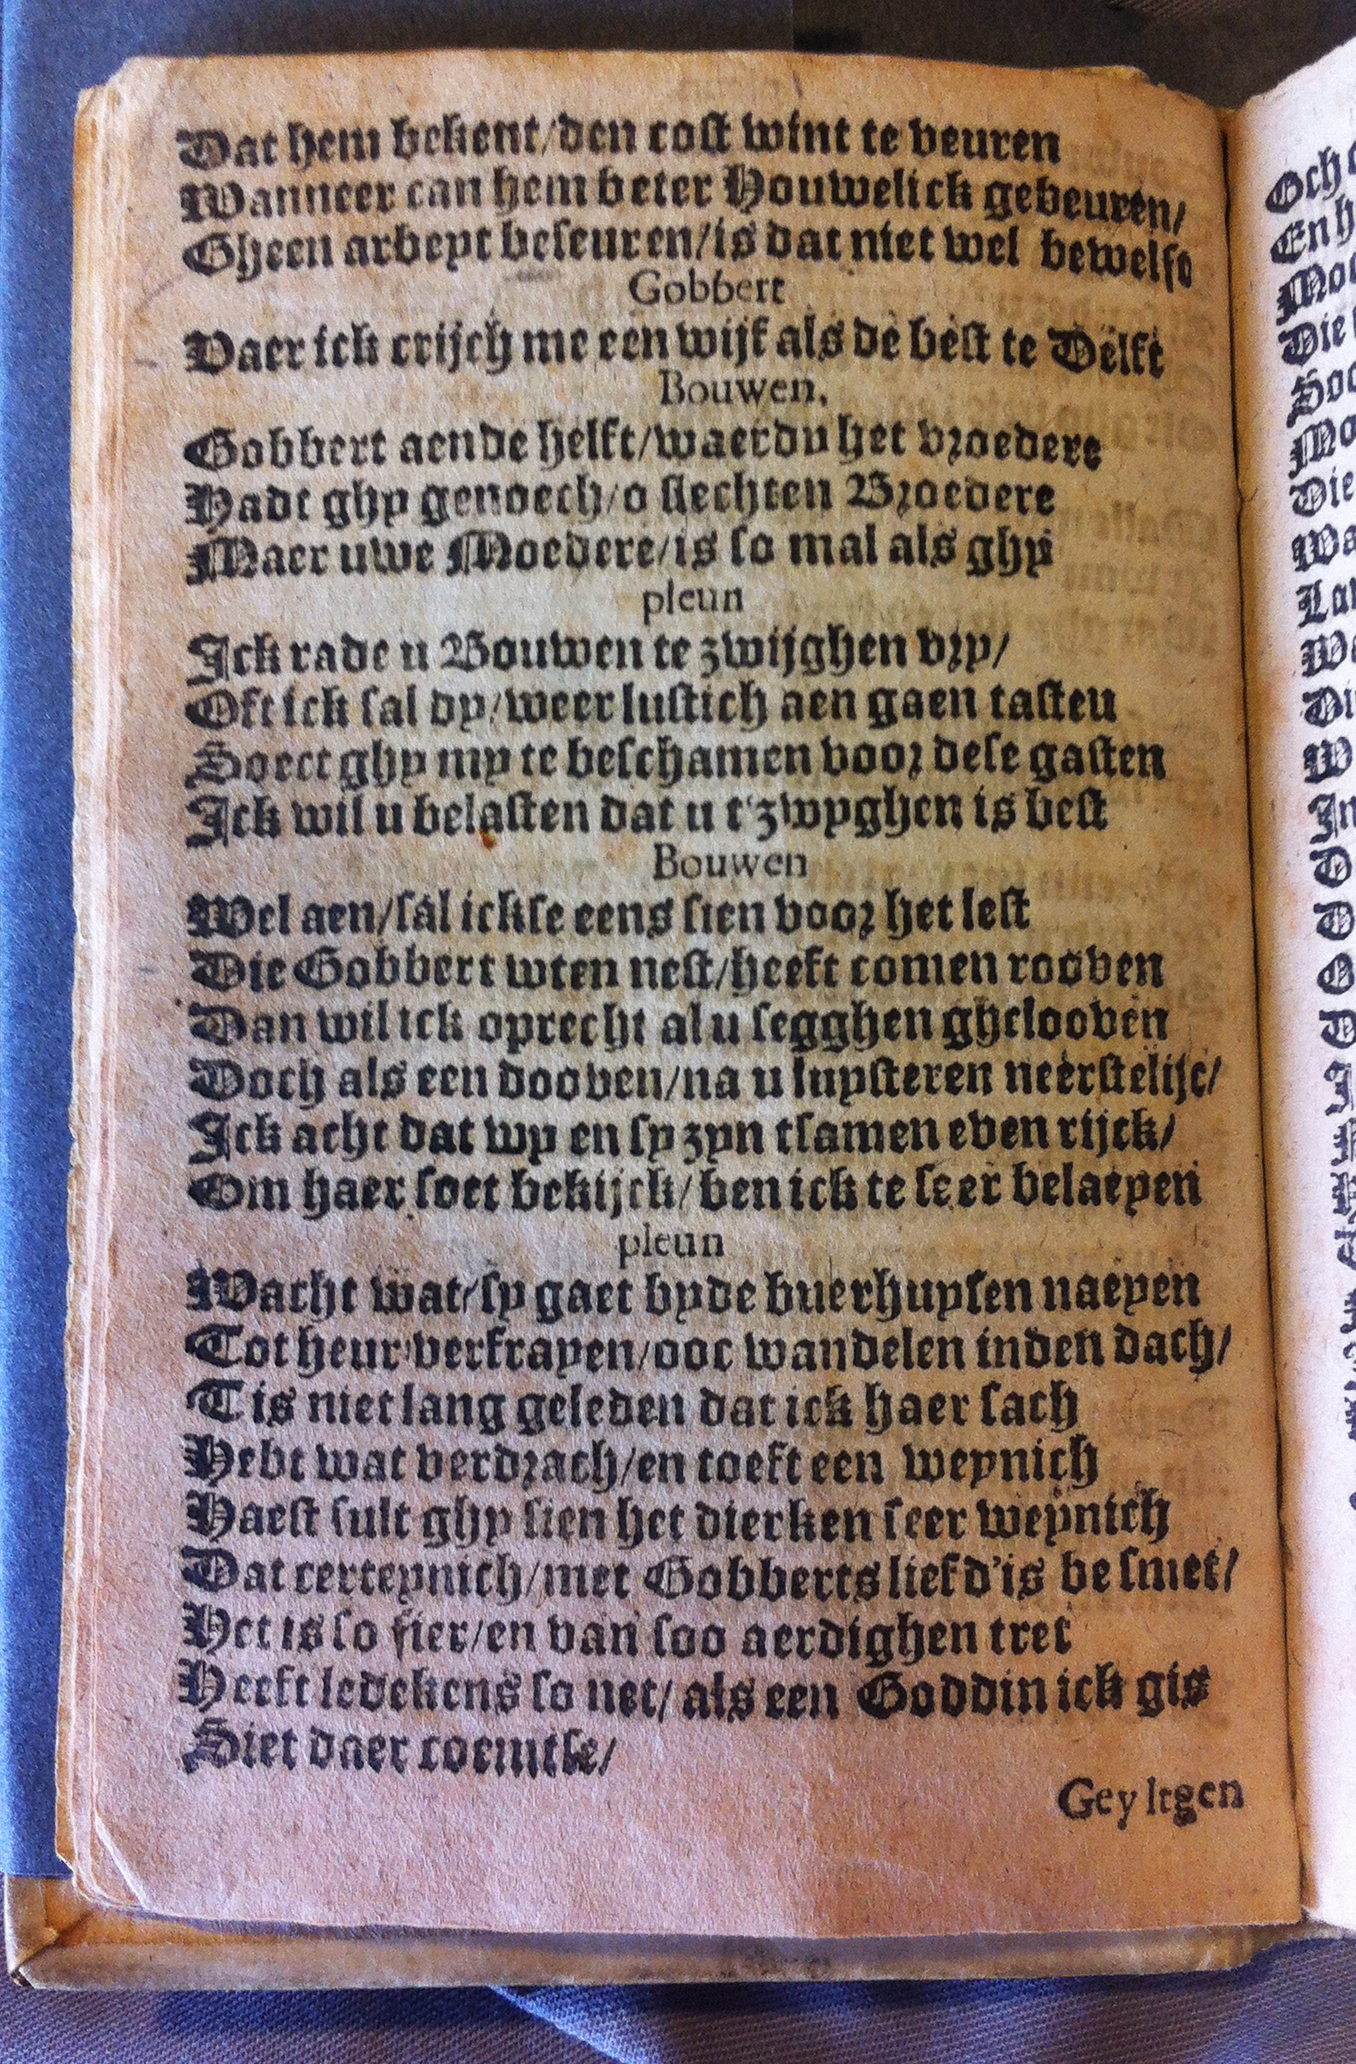 Dat hem bekent/den cost wint te veuren
Wanneer can hem beter Houwelick gebeuren/
Gheen arbeyt beseuren/is dat niet wel bewelft
Gobbert
Vaer ick crijch me een wijf als de best te Delft
Bouwen,
Gobbert aende helft/waerdu het vroedere
Hadt ghy genoech/o slechten Broedere
Maer uwe Moedere/is so mal als ghy
pleun
Ick rade u Bouwen te zwijghen vry/
Oft ick sal dy/weer lustich aen gaen tasten
Soect ghy my te beschamen voor dese gasten
Ick wil u belasten dat u t'zwyghen is best
Bouwen
Wel aen/sal ickse eens sien voor het lest
Die Gobbert wten nest/heeft comen rooven
Dan wil ick oprecht al u segghen ghelooven
Doch als een dooven/na u luysteren neerstelijc/
Ick acht dat wy en sy zyn tsamen even rijck/
Om haer soet bekijck/ben ick te seer belaeyen
pleun
Wacht wat/sy gaet byde buerhuysen naeyen
Tot heur verfrayen/ooc wandelen inden dach/
Tis niet lang geleden dat ick haer sach
Hebt wat verdrach/en toeft een weynich
Haest sult ghy sien het dierken seer weynich
Dat certeynich/met Gobberts liefd'is besmet/
Het is so fier/en van soo aerdighen tret
Heeft ledekens so net/als een Goddin ick gis
Siet daer coemtse/
Geyltgen
Och
En
Die
Die
Wa
In